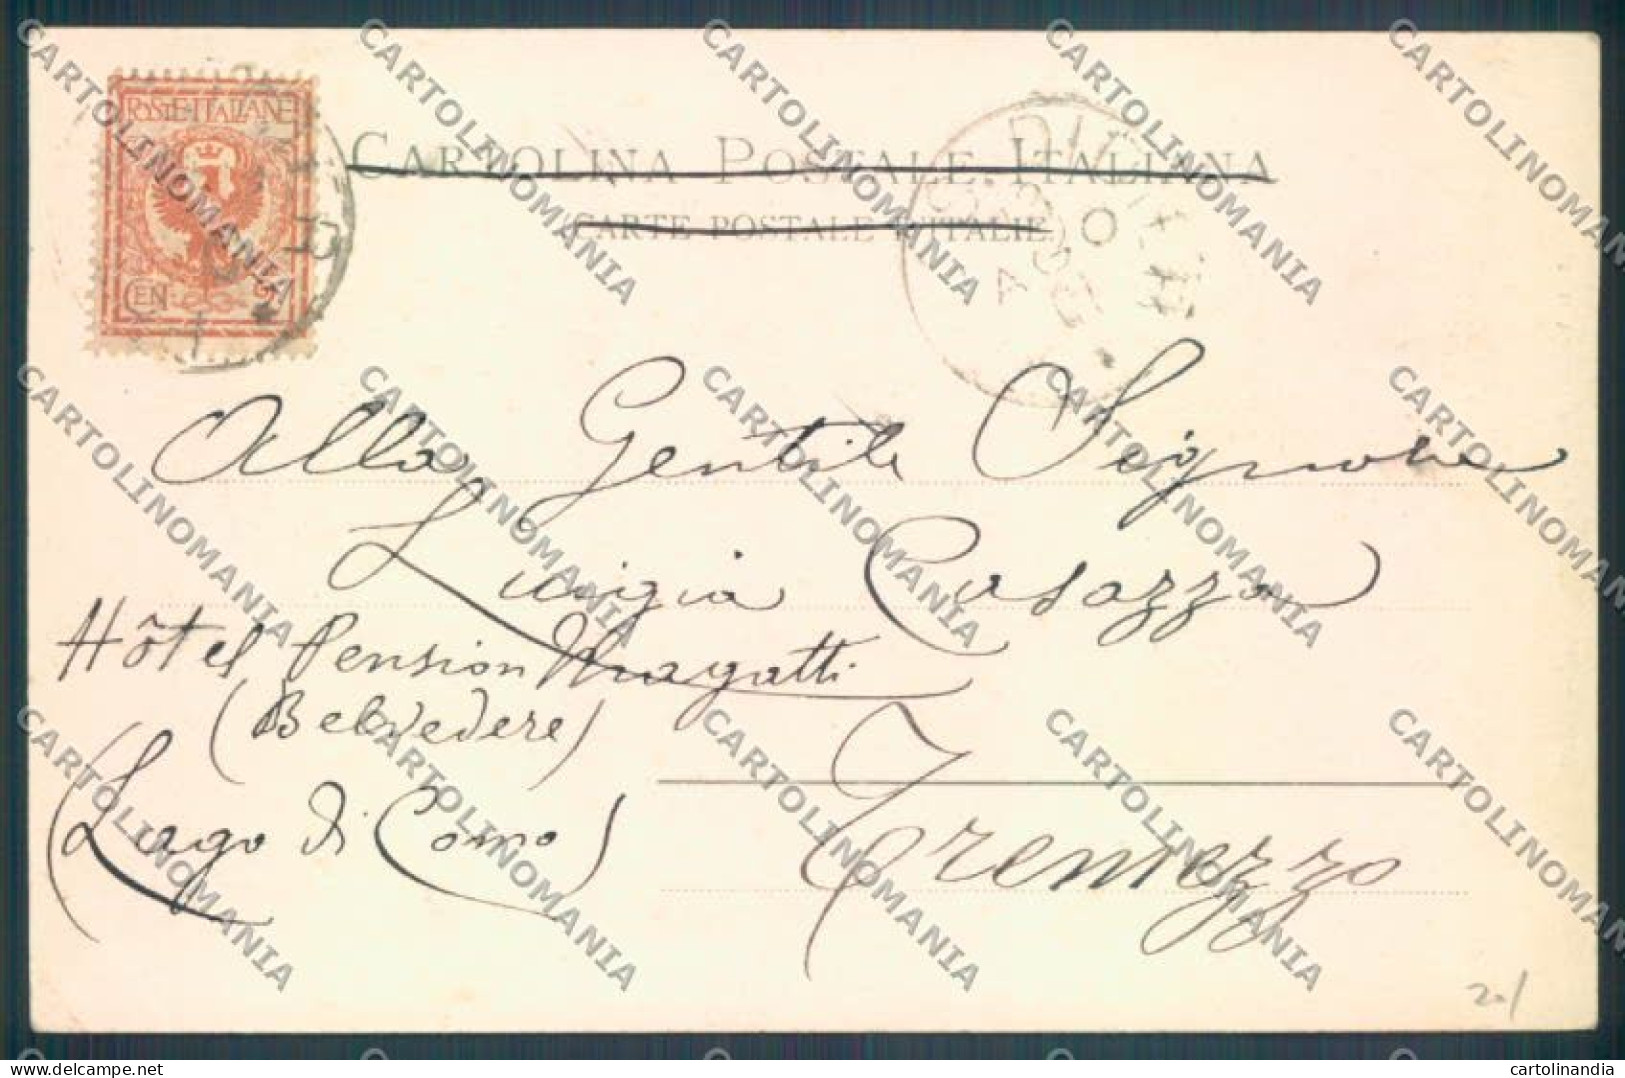 POSTE·ITALIANE
CEN 2
CARTOLINA POSTALE ITALIANA
CARTE POSTALE D'ITALIE
Alla Gentile Signora
Luigia Casazza
Hôtel Pension Magatti
(Belvedere)
(Lago di Como)
Tremezzo
20/
CARTOLINOMANIA
cartolinandia